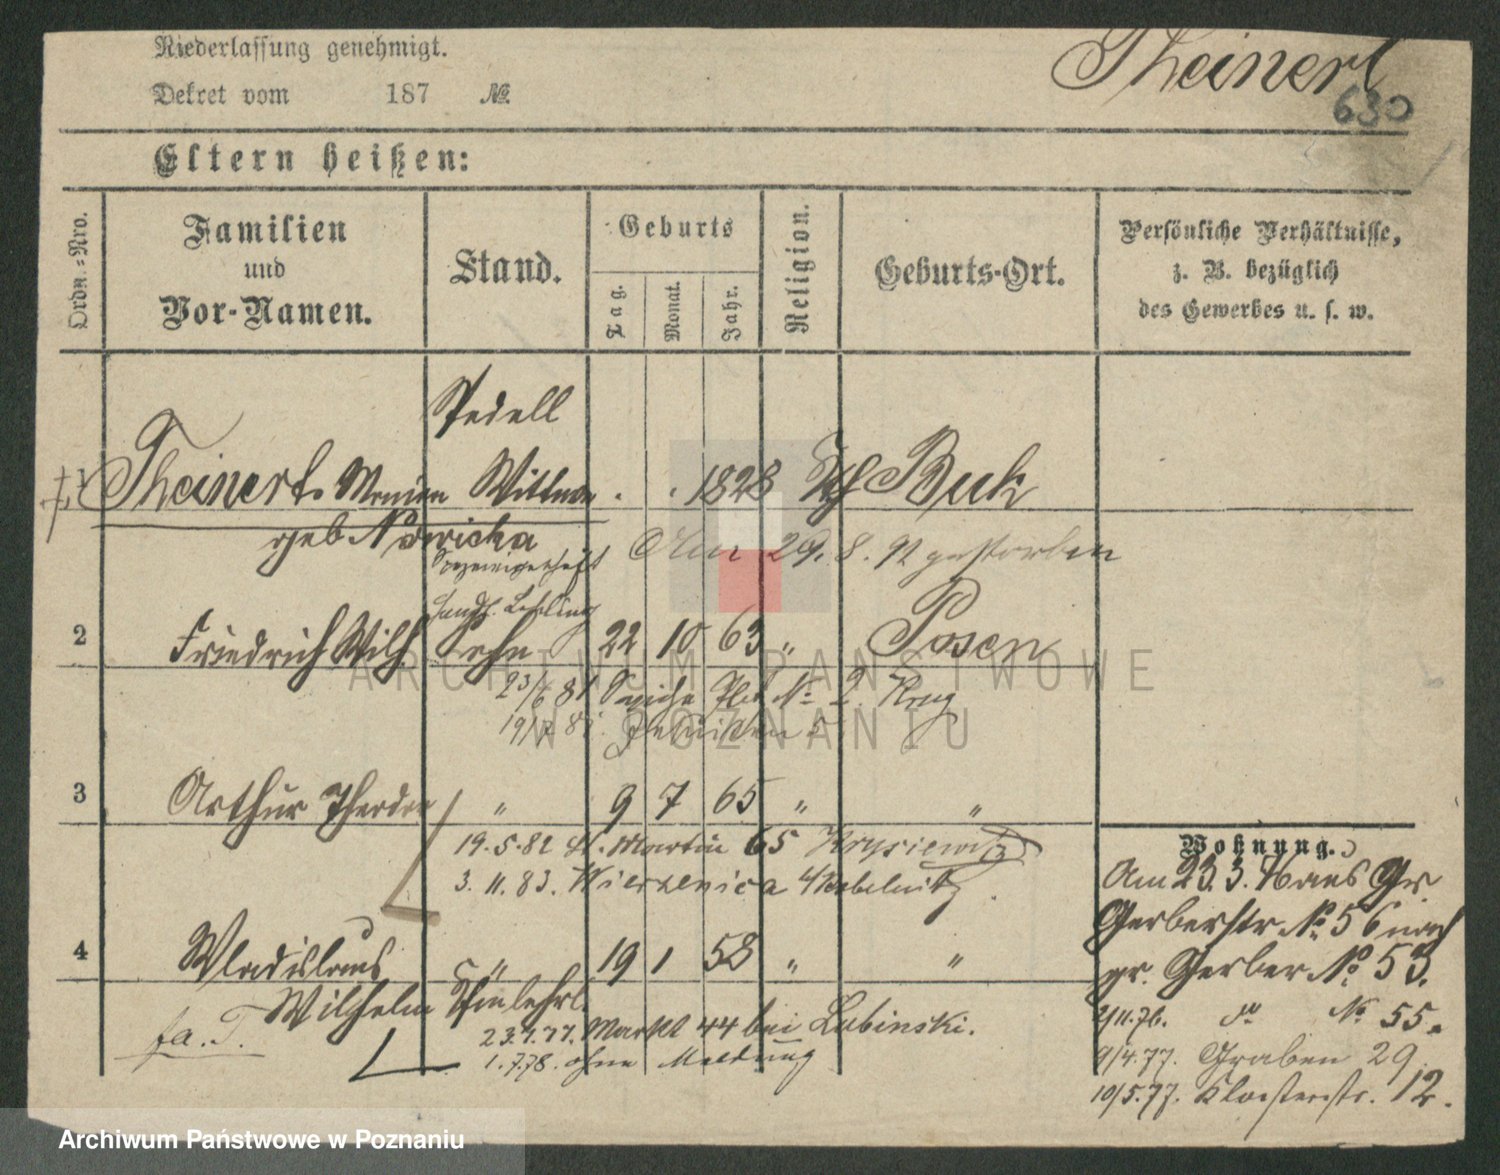 Niederlassung genehmigt.
Dekret vom 187 №
Theinert
630
Eltern heißen:
Ordn.-Nro.
Familien und Vor-Namen.
Stand.
Geburts
Tag.
Monat.
Jahr.
Religion.
Geburts-Ort.
Persönliche Verhältnisse,
z. B. bezüglich
des Gewerbes u. s. w.
Pedell
1 Theinert. Wittwe 1828 kth Buk
geb Nowicka
Am 29. 8. 92 gestorben
Handl. Lehrling
2 Friedrich Wilh Sohn 22 10 63 " Posen
23/6 81 № 2 Krug
19/12
3 Arthur Theodor " 9 7 65 " "
19.5.82 St. Martin 65 Krysiewicz
3. 11. 83. Wierzenica
4 Wladislaus " 19 1 58 " "
Wilhelm
fa. T.
23.1.77. Markt 44 bei Lubinski.
1.7.78. ohne Meldung
Wohnung.
Am 23. 3. Gr
Gerberstr. № 56 nach
gr. Gerber № 53.
2/11.76. do № 55.
9/4.77. Graben 29
10/5.77. Klosterstr. 12.
ARCHIWUM PAŃSTWOWE
W POZNANIU
Archiwum Państwowe w Poznaniu